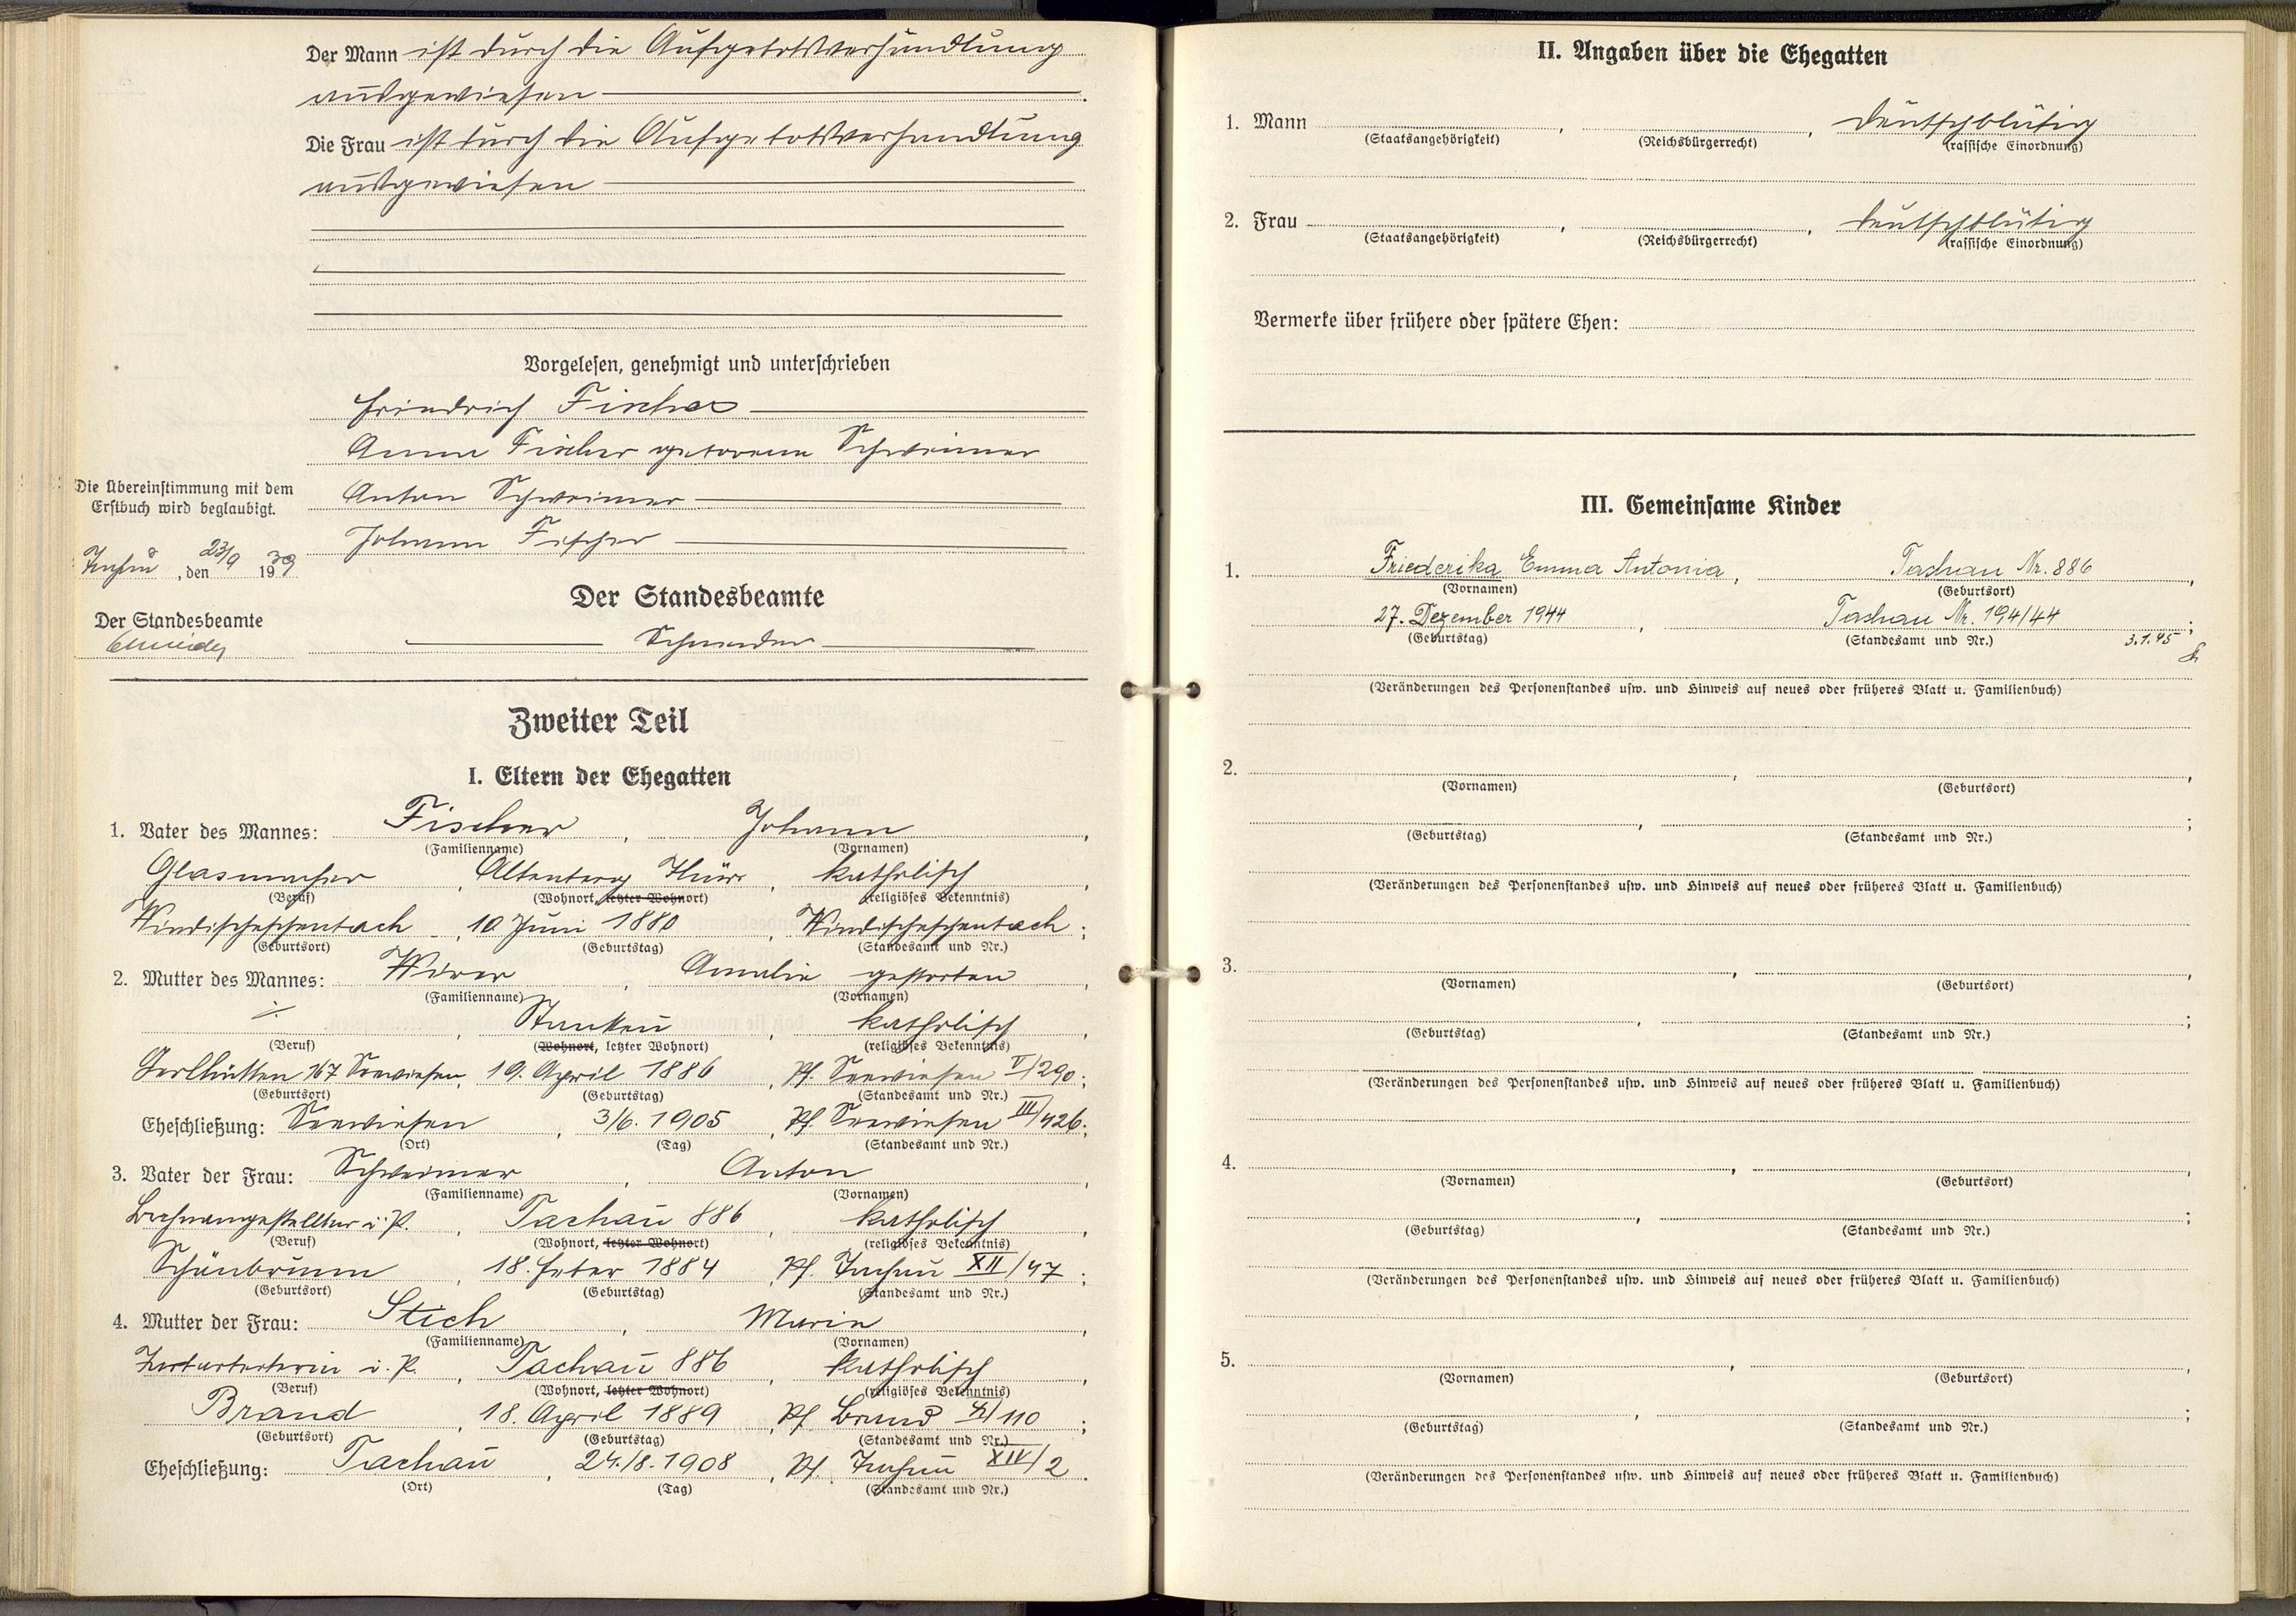 Der Mann ist durch die Aufgebotsverhandlung
ausgewiesen
Die Frau ist durch die Aufgebotsverhandlung
ausgewiesen
Vorgelesen, genehmigt und unterschrieben
Friedrich Fischer
Anna Fischer geborene Schweimer
Anton Schweimer
Johann Fischer
Die Übereinstimmung mit dem
Erstbuch wird beglaubigt.
Tachau, den 23/9 1939
Der Standesbeamte
Der Standesbeamte
Schneider
Zweiter Teil
I. Eltern der Ehegatten
1. Vater des Mannes: Fischer, Johann,
(Familienname) (Vornamen)
Glasmacher, Altenberg, katholisch,
(Beruf) (Wohnort, letzter Wohnort) (religiöses Bekenntnis)
Windischeschenbach, 10 Juni 1880, Windischeschenbach;
(Geburtsort) (Geburtstag) (Standesamt und Nr.)
2. Mutter des Mannes: Amalie gestorben,
(Familienname) (Vornamen)
Stankau, katholisch,
(Beruf) (Wohnort, letzter Wohnort) (religiöses Bekenntnis)
Gerlhütten 167 Seewiesen, 19. April 1886, Pf. Seewiesen V/290;
(Geburtsort) (Geburtstag) (Standesamt und Nr.)
Eheschließung: Seewiesen, 3/6. 1905, Pf. Seewiesen III/426;
(Ort) (Tag) (Standesamt und Nr.)
3. Vater der Frau: Schweimer, Anton,
(Familienname) (Vornamen)
i. P., Tachau 886, katholisch,
(Beruf) (Wohnort, letzter Wohnort) (religiöses Bekenntnis)
Schönbrunn, 18. Feber 1884, Pf. Tachau XII/47;
(Geburtsort) (Geburtstag) (Standesamt und Nr.)
4. Mutter der Frau: Stich, Marie,
(Familienname) (Vornamen)
i. P., Tachau 886, katholisch,
(Beruf) (Wohnort, letzter Wohnort) (religiöses Bekenntnis)
Brand, 18. April 1889, Pf. Brand /110;
(Geburtsort) (Geburtstag) (Standesamt und Nr.)
Eheschließung: Tachau, 24./8. 1908, Pf. Tachau XIV/2.
(Ort) (Tag) (Standesamt und Nr.)
II. Angaben über die Ehegatten
1. Mann , , deutschblütig
(Staatsangehörigkeit) (Reichsbürgerrecht) (rassische Einordnung)
2. Frau , , deutschblütig
(Staatsangehörigkeit) (Reichsbürgerrecht) (rassische Einordnung)
Vermerke über frühere oder spätere Ehen:
III. Gemeinsame Kinder
1. Friederika Emma Antonia, Tachau Nr. 886,
(Vornamen) (Geburtsort)
27. Dezember 1944, Tachau Nr. 194/44;
(Geburtstag) (Standesamt und Nr.) 3.1.45
(Veränderungen des Personenstandes usw. und Hinweis auf neues oder früheres Blatt u. Familienbuch)
2. , ,
(Vornamen) (Geburtsort)
, ;
(Geburtstag) (Standesamt und Nr.)
(Veränderungen des Personenstandes usw. und Hinweis auf neues oder früheres Blatt u. Familienbuch)
3. , ,
(Vornamen) (Geburtsort)
, ;
(Geburtstag) (Standesamt und Nr.)
(Veränderungen des Personenstandes usw. und Hinweis auf neues oder früheres Blatt u. Familienbuch)
4. , ,
(Vornamen) (Geburtsort)
, ;
(Geburtstag) (Standesamt und Nr.)
(Veränderungen des Personenstandes usw. und Hinweis auf neues oder früheres Blatt u. Familienbuch)
5. , ,
(Vornamen) (Geburtsort)
, ;
(Geburtstag) (Standesamt und Nr.)
(Veränderungen des Personenstandes usw. und Hinweis auf neues oder früheres Blatt u. Familienbuch)